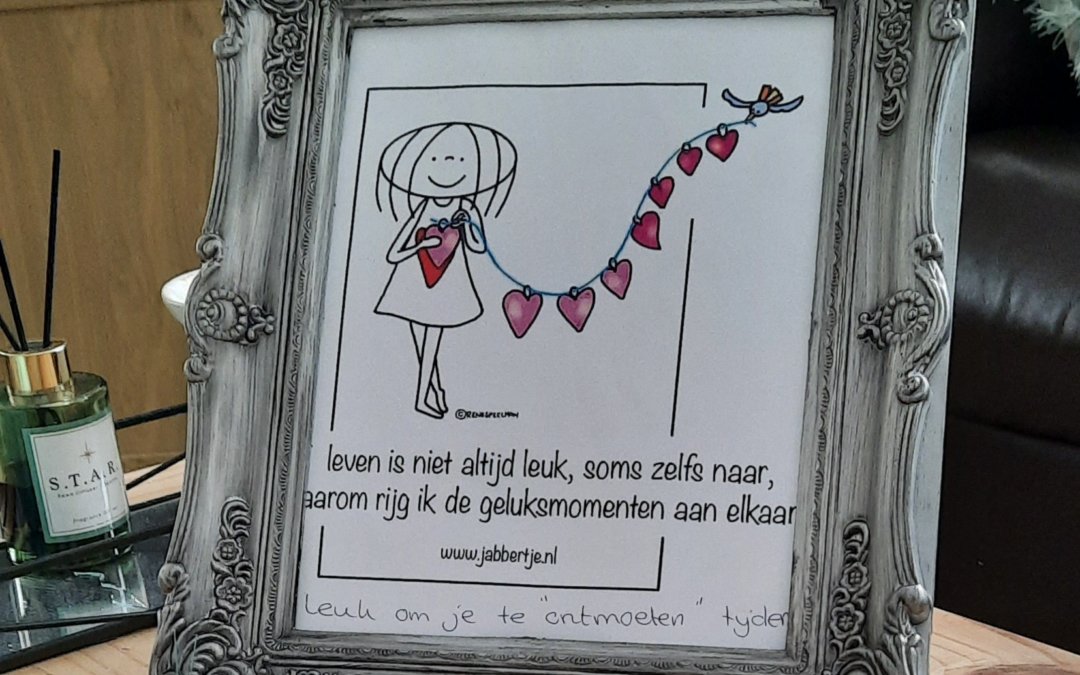 ©RENESPEELMAN
leven is niet altijd leuk, soms zelfs naar,
aarom rijg ik de geluksmomenten aan elkaar
www.jabbertje.nl
Leuk om je te "ontmoeten" tijden
S.T.A.R.